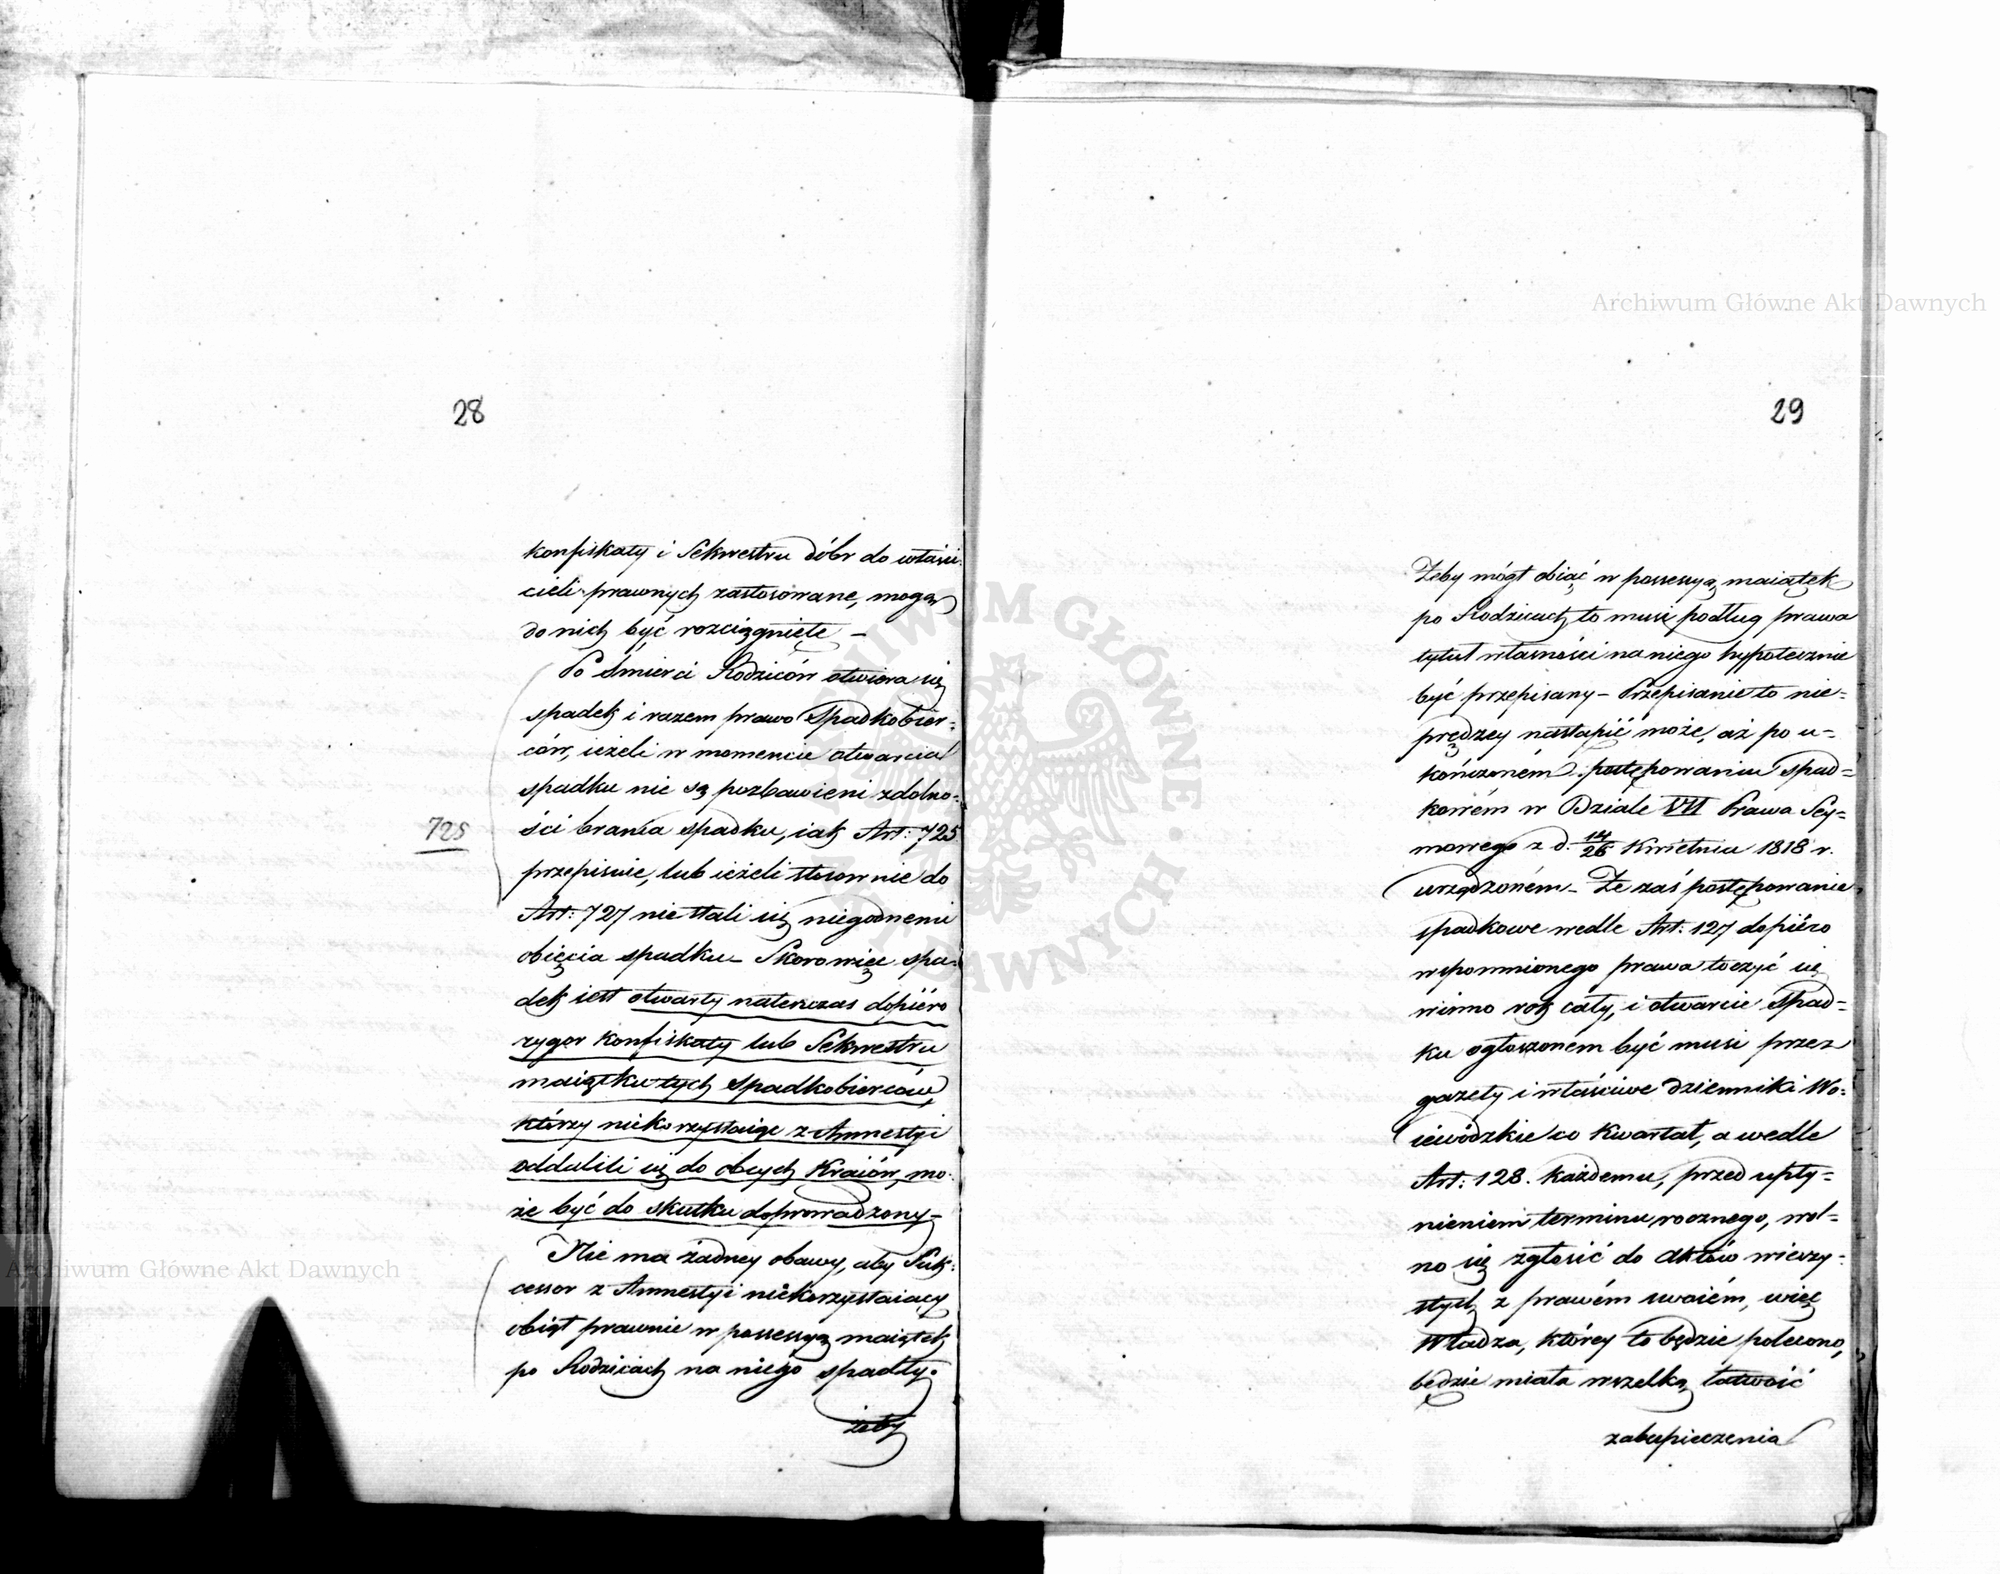 28
konfiskaty i Sekwestru dóbr do właści-
cieli prawnych zastosowane, mogą
do nich być rozciągnięte –
Po śmierci Rodziców otwiera się
spadek i razem prawo Spadkobier-
ców, ieżeli w momencie otwarcia
spadku nie są pozbawieni zdolno-
ści brania spadku, iak Art: 725
725
przepisuie, lub ieżeli stosownie do
Art: 727 nie stali się niegodnemi
obięcia spadku – Skoro więc spa-
dek iest otwarty natenczas dopiéro
rygor konfiskaty lub Sekwestru
maiątku tych spadkobierców,
którzy niekorzystaiąc z Amnestyi
oddalili się do obcych Kraiów, mo-
że być do skutku doprowadzony –
Nie ma żadney obawy, aby Suk-
cessor z Amnestyi niekorzystaiący
obiął prawnie w possessyą maiątek
po Rodzicach na niego spadły.
żeby
29
Żeby mógł obiąć w possessyą maiątek
po Rodzicach, to musi podług prawa
tytuł własności na niego hypotecznie
być przepisany – Przepisanie to nie-
prędzey nastąpić może, aż po u-
kończoném postępowaniu Spad-
kowém w Dziale VII Prawa Sey-
mowego z d. 14/26 Kwietnia 1818 r.
urządzoném – Że zaś postępowanie
spadkowe wedle Art: 127 dopiéro
wspomnionego prawa toczyć się
winno rok cały, i otwarcie Spad-
ku ogłoszonem być musi przez
gazety i właściwe dzienniki Wo-
iewódzkie co Kwartał, a wedle
Art: 128. każdemu, przed upły-
nieniem terminu rocznego, wol-
no się zgłosić do aktów wieczy-
stych z prawém swoiém, więc
Władza, którey to będzie polecono,
będzie miała wszelką łatwość
zabespieczenia
Archiwum Główne Akt Dawnych
Archiwum Główne Akt Dawnych
ARCHIWUM GŁÓWNE AKT DAWNYCH